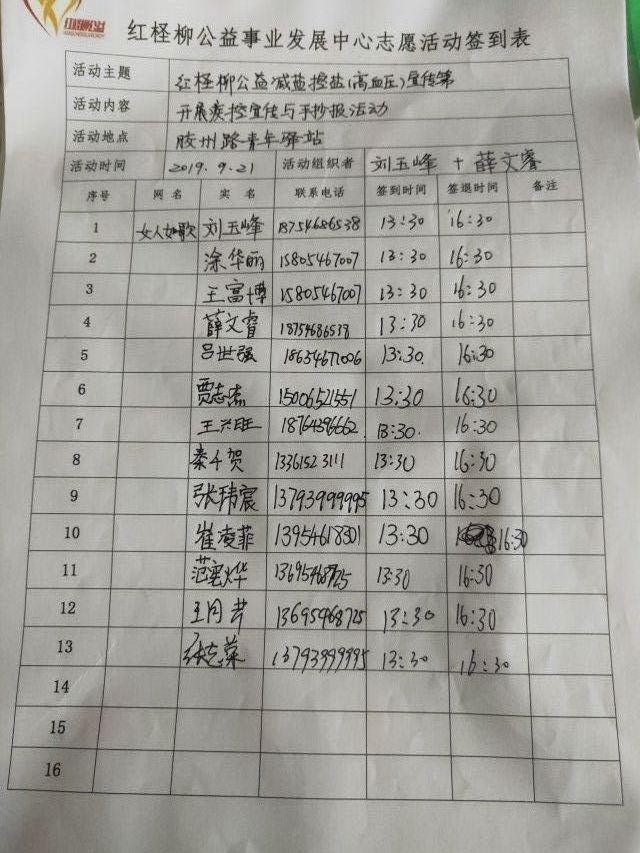 红柽柳公益
红柽柳公益事业发展中心志愿活动签到表
活动主题 红柽柳公益减盐控盐(高血压)宣传第
活动内容 开展疾控宣传与手抄报活动
活动地点 胶州路青年驿站
活动时间 2019.9.21 活动组织者 刘玉峰 + 薛文睿
序号 网名 实名 联系电话 签到时间 签退时间 备注
1 女人如歌 刘玉峰 18754686538 13:30 16:30
2 涂华丽 15805467007 13:30 16:30
3 王富博 15805467007 13:30 16:30
4 薛文睿 18754686538 13:30 16:30
5 吕世强 18654671006 13:30. 16:30
6 贾志杰 15006521551 13:30 16:30
7 王兴旺 18764396662 13:30. 16:30
8 秦千贺 13361523111 13:30 16:30
9 张玮宸 13793999995 13:30 16:30
10 崔凌菲 13954618301 13:30 16:30
11 13695468725 13:30 16:30
12 王月芹 13695468725 13:30 16:30
13 张志荣 13793999995 13:30 16:30
14
15
16